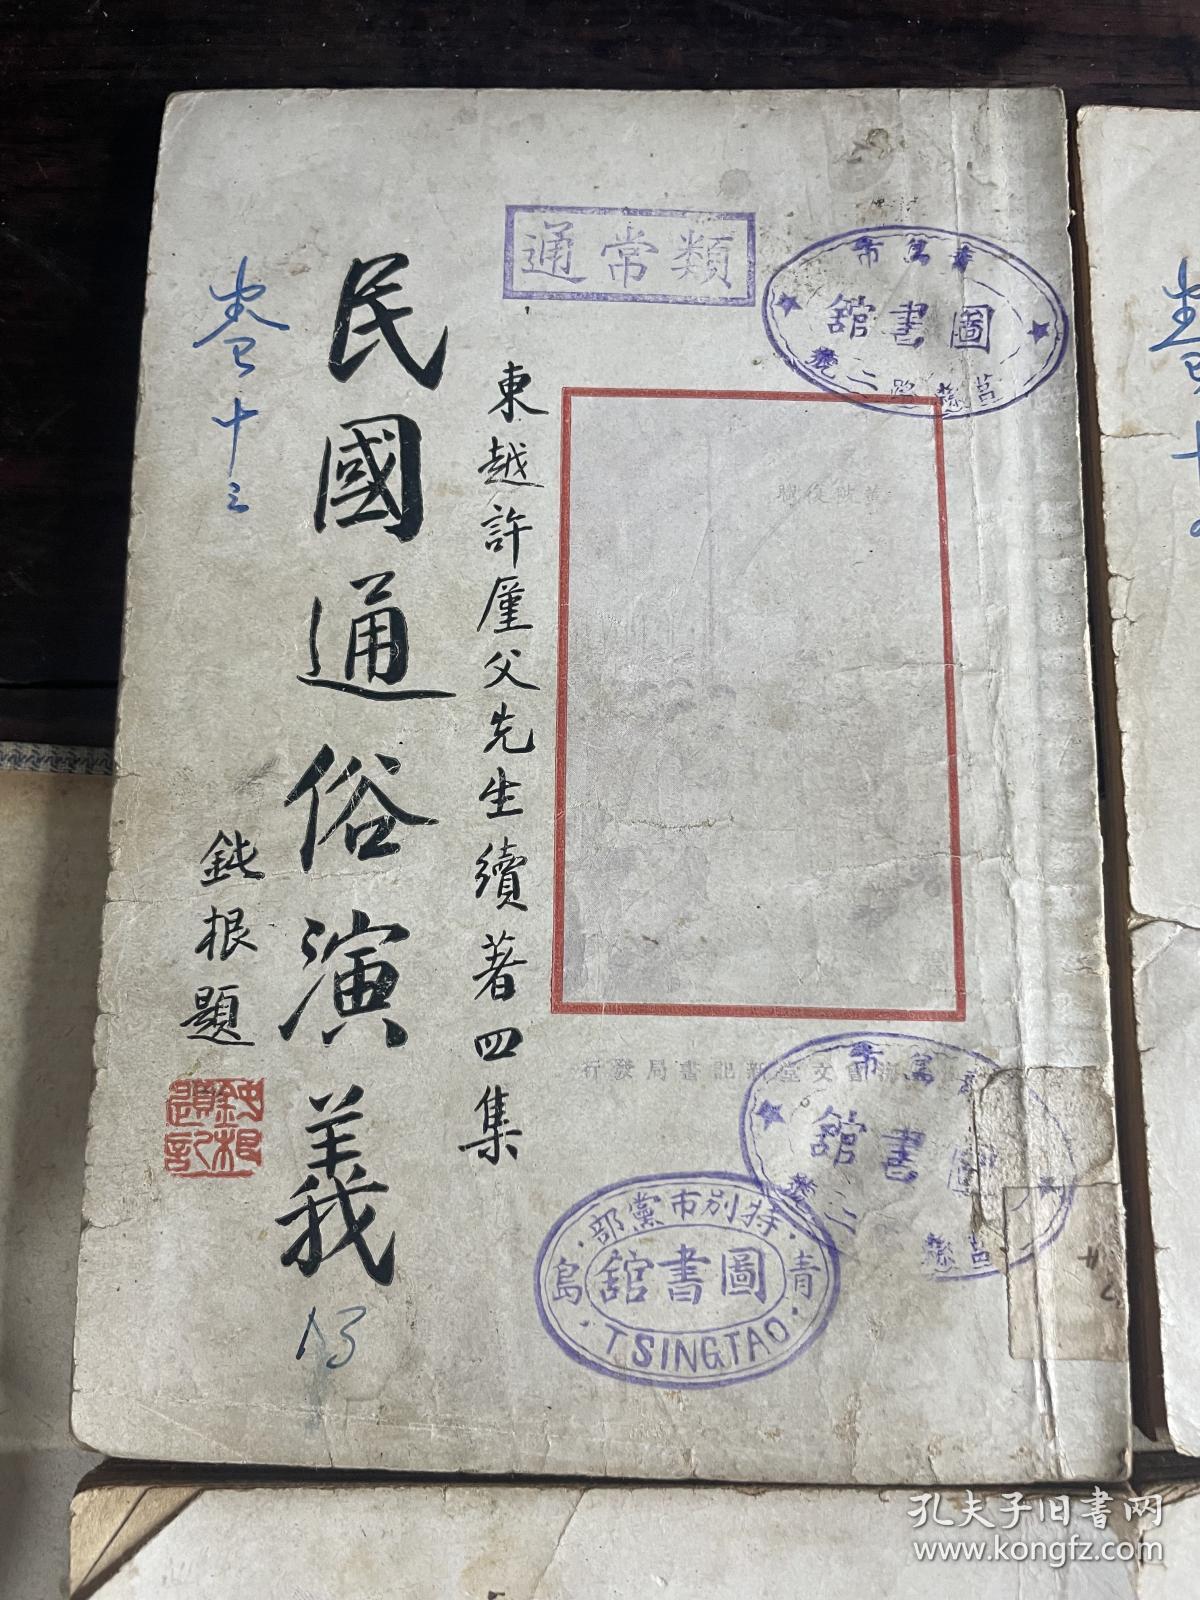 通常類
青島市
圖書館
莒縣路二號
東越許廑父先生續著四集
民國通俗演義
13
卷十三
鈍根題
鈍根題記
蔡鍔復職
海會文堂新記書局發行
青島市
圖書館
莒縣
二號
青島特別市黨部
圖書館
TSINGTAO
卷十
孔夫子旧书网
www.kongfz.com